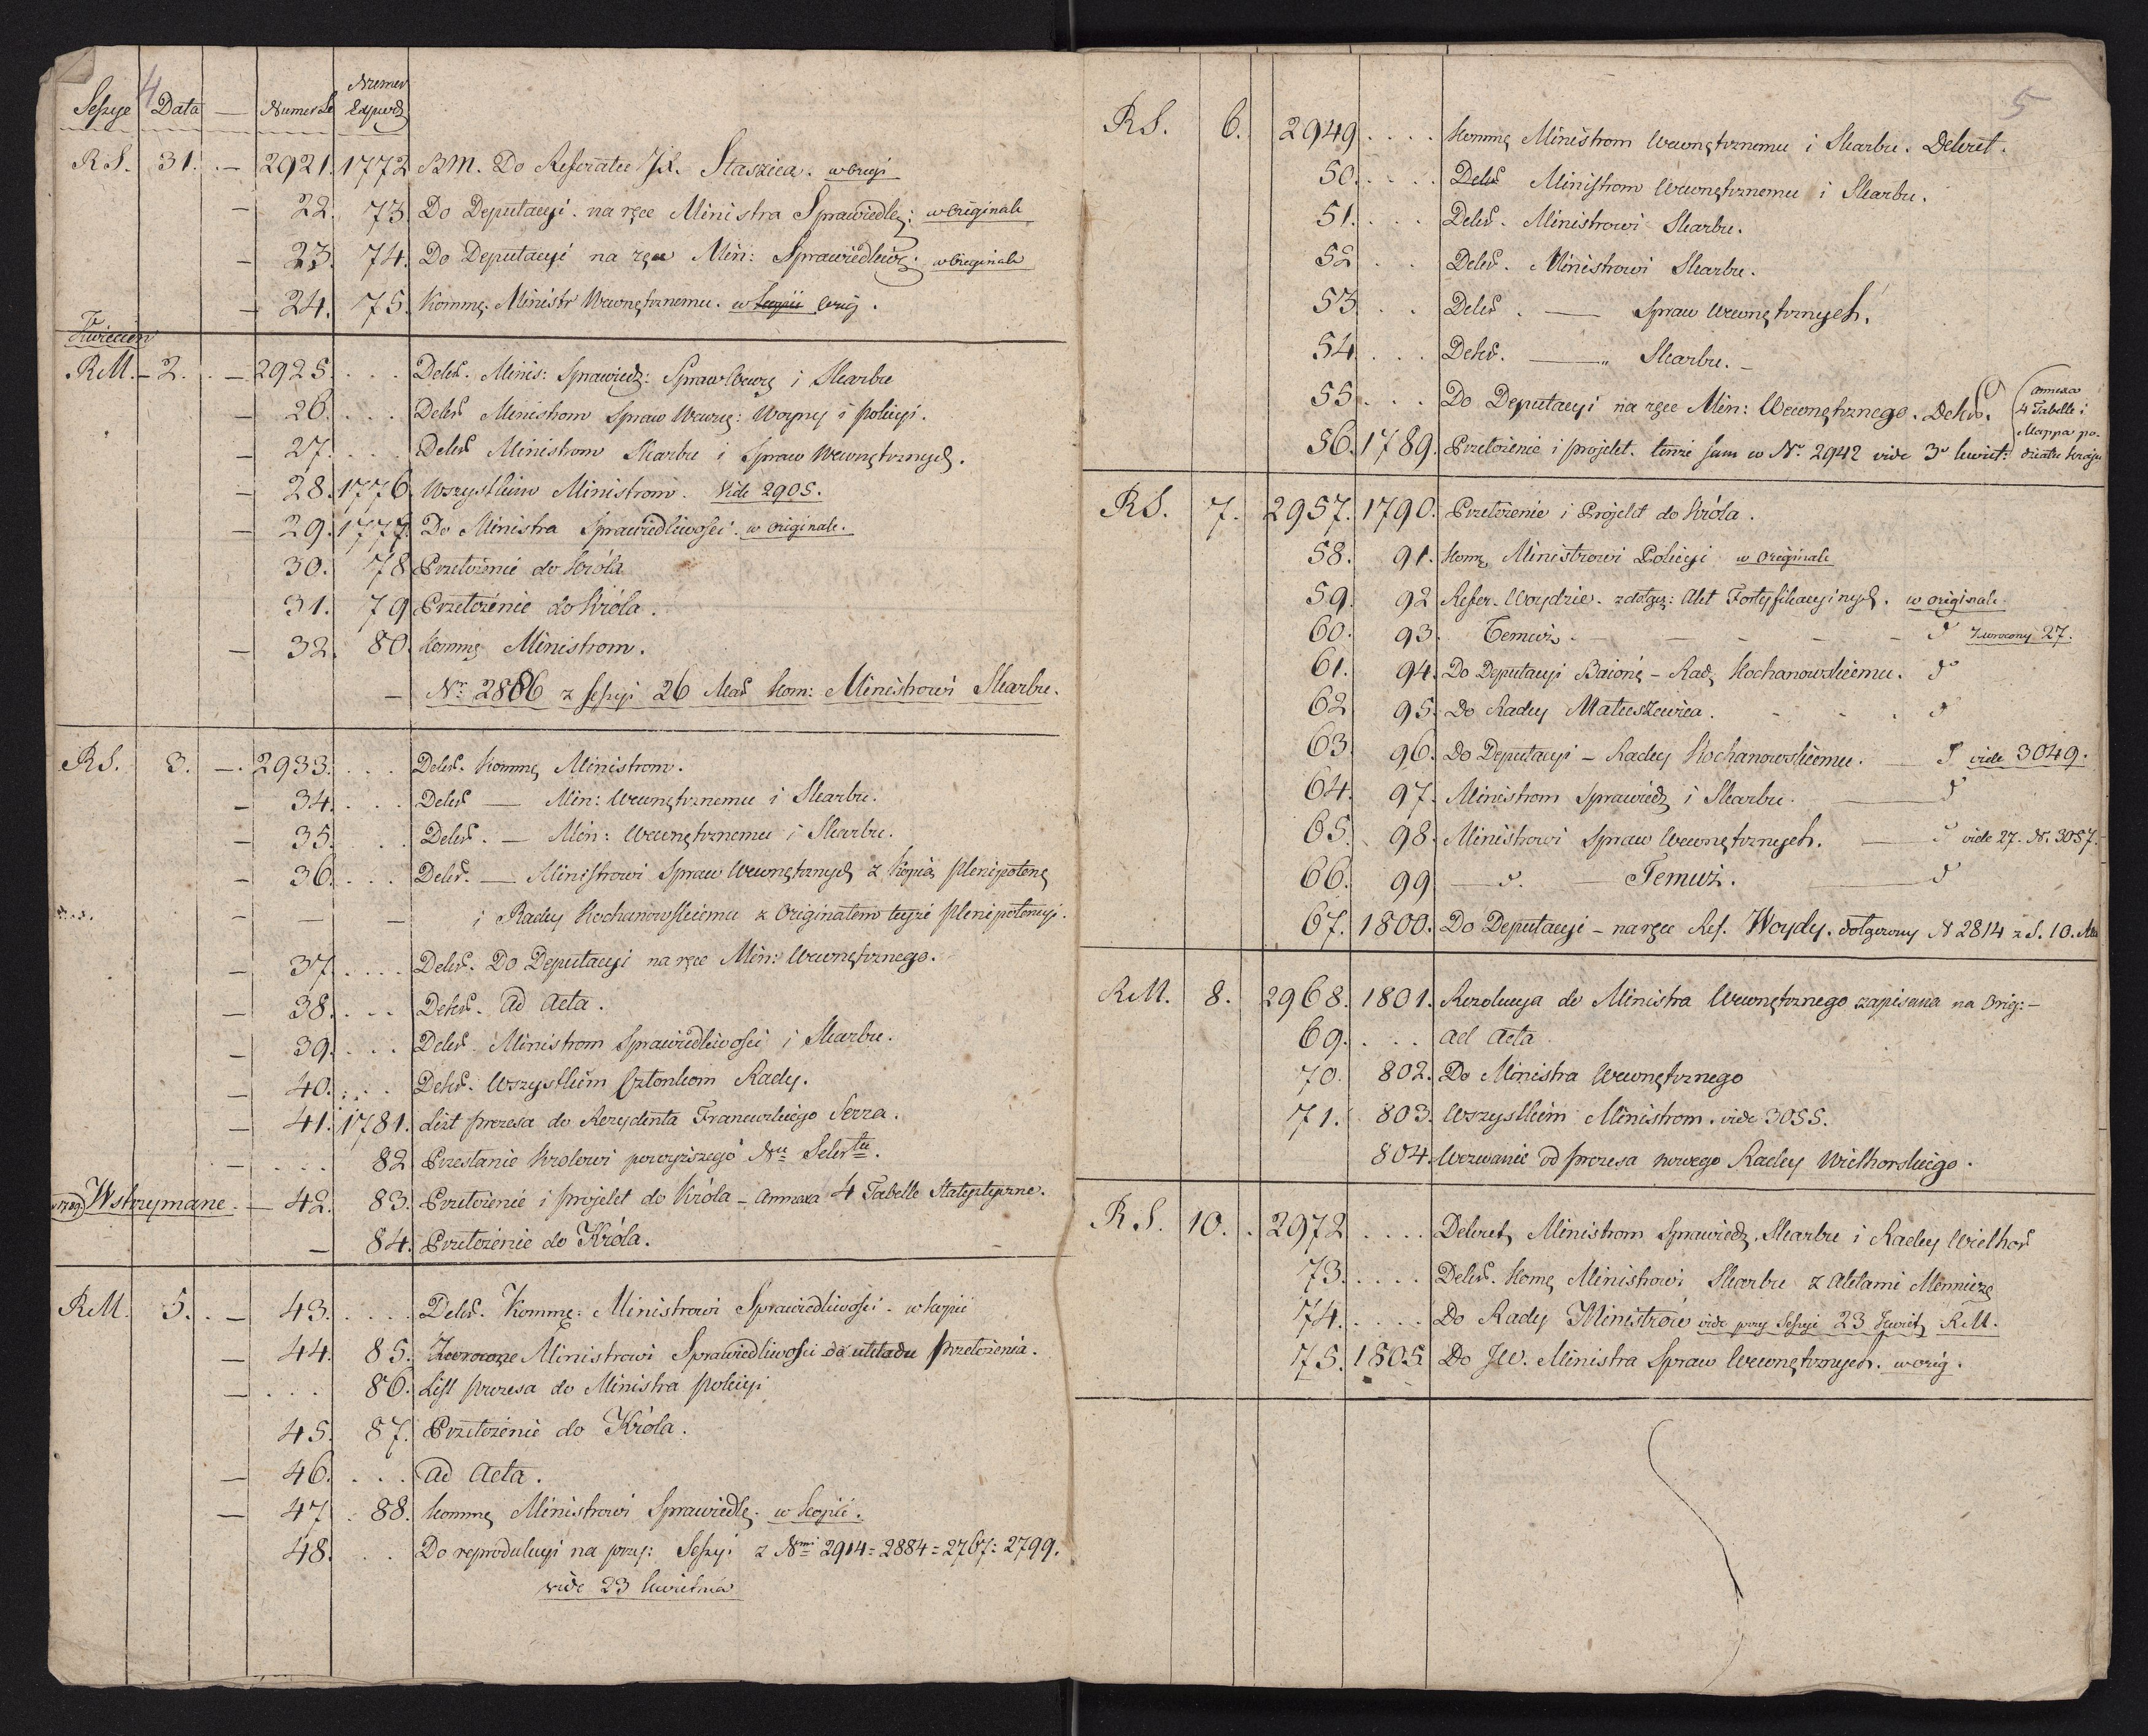 4
Numer
Sessye Data — Numera Expedy
RS. 31. — 2921. 1772 BM. Do Referatu JX. Staszica. w Orygi
— 22. 73. Do Deputacyi. na ręce Ministra Sprawiedlę: w Originale
— 23. 74. Do Deputacyi na ręce Min: Sprawiedliwę: w Originale
— 24. 75. Kommę. Ministr Wewnętrznemu. w kopii Orig.
Kwiecien
RM. — 2. — 2925. . . . Dekr. Minis: Sprawiedz: Spraw Wewnę i Skarbu
— 26. . . . Dekr Ministrom Spraw Wewnę: Woyny i Policyi.
— 27. . . . Dekr Ministrom Skarbu i Spraw Wewnętrznych.
— 28. 1776 Wszystkim Ministrom. Vide 2905.
— 29. 1777. Do Ministra Sprawiedliwości. w Originale.
30. 78 Przełożenie do Króla
31. 79 Przełożenie do Króla.
— 32. 80. Kommę Ministrom.
— Nr 2886 z Sessyi 26 Mar Kom: Ministrowi Skarbu.
RS. 3. — 2933. . . . Dekr. Kommę Ministrom.
— 34. . . . Dekr — Min: Wewnętrznemu i Skarbu.
— 35. . . . Dekr. — Min: Wewnętrznemu i Skarbu.
— 36. . . . Dekr. — Ministrowi Spraw Wewnętrznych z Kopią Plenipotenę
— — — i Radcy Kochanowskiemu z Originałem teyże Plenipotencyi.
— 37. . . . Dekr. Do Deputacyi na ręce Min: Wewnętrznego.
— 38. . . . Dekr. Ad Acta.
— 39. . . . Dekr. Ministrom Sprawiedliwości i Skarbu.
— 40. . . . Dekr. Wszystkim Członkom Rady.
— 41. 1781. List Prezesa do Rezydenta Francuzkiego Serra.
— . . . 82 Przesłanie Krolowi powyższego Nu Sekretu.
Wstrzymane. — 42. 83. Przełożenie i projekt do Króla — Annexa 4 Tabelle Statystyczne.
— 84. Przełożenie do Króla.
RM. 5. — 43. . . . Dekr. Kommę: Ministrowi Sprawiedliwości. w kopii
— 44. 85. Zwrocone Ministrowi Sprawiedliwości do układu przełożenia.
— . . . 86. List Prezesa do Ministra Policyi
45. 87. Przełożenie do Króla.
— 46. . . . Ad Acta.
— 47. 88. Kommę Ministrowi Sprawiedlę. w kopii.
48. . . Do reprodukcyi na przy: Sessyi z Nmi 2914 = 2884 = 2767 = 2799.
vide 23 kwietnia
5
RS. 6. 2949. . . . Kommę Ministrom Wewnętrznemu i Skarbu. Dekret.
50. . . . Dekr Ministrom Wewnętrznemu i Skarbu.
51. . . . Dekr. Ministrowi Skarbu.
52 . . Dekr. Ministrowi Skarbu.
53. . . Dekr. — Spraw Wewnętrznych.
54. . . . Dekr. — " Skarbu. —
55. . . . Do Deputacyi na ręce Min: Wewnętrznego. Dekr. (annexa 4 Tabelle i Mappa po-
56. 1789. Przełożenie i projekt. tenże sam co Nr. 2942 vide 3o kwiet: działu kraju
RS. 7. 2957. 1790. Przełożenie i Projekt do Króla.
58. 91. Komę Ministrowi Policyi w Originale
59. 92 Refer. Woydzie. z dołącz: Akt Fortyfikacyinych. w originale.
60. 93. Temuż. — — — — do Zwrocony 27.
61. 94. Do Deputacyi Baionę — Radę Kochanowskiemu. do
62 95. Do Radcy Matuszewica. . . . do
63. 96. Do Deputacyi — Radcy Kochanowskiemu. — do vide 3049.
64. 97. Ministrom Sprawiedz i Skarbu. — do
65. 98. Ministrowi Spraw Wewnętrznych. — do vide 27. N. 3057.
66. 99 — do. — Temuż. — do
67. 1800. Do Deputacyi — na ręce Ref. Woydy. dołączony N 2814 z S. 10. Mar
RM. 8. 2968. 1801. Rezolucya do Ministra Wewnętrznego zapisana na Orig: —
69. . . . Ad Acta
70. 802. Do Ministra Wewnętrznego
71. 803. Wszystkim Ministrom. vide 3055.
804. Wezwanie od Prezesa nowego Radcy Wielhorskiego.
RS. 10. 2972 . . . . Dekret, Ministrom Sprawiedz. Skarbu i Radcy Wielhor
73. . . . . Dekr. Komę Ministrowi Skarbu z Aktami Menniczę
74. . . . . Do Rady Ministrów vide przy Sessyi 23 Kwiet, RM.
75. 1805. Do JW. Ministra Spraw Wewnętrznych. w orig.